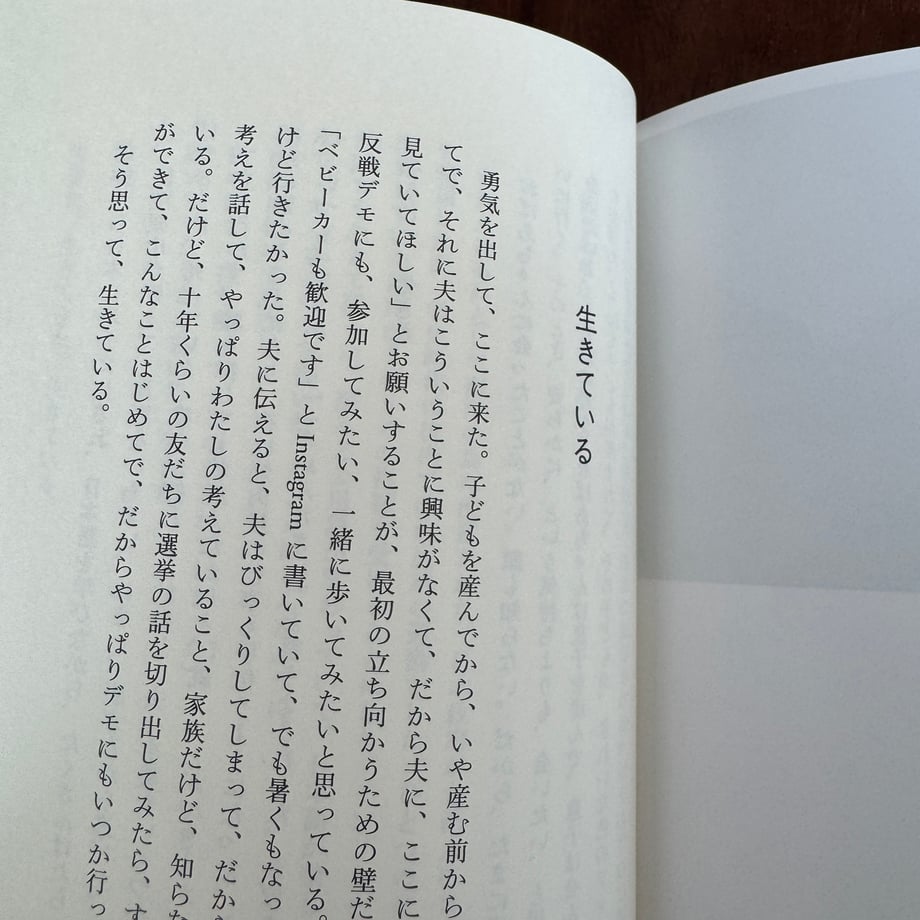 生きている
勇気を出して、ここに来た。子どもを産んでから、いや産む前から
てで、それに夫はこういうことに興味がなくて、だから夫に、ここに
見ていてほしい」とお願いすることが、最初の立ち向かうための壁だ
反戦デモにも、参加してみたい、一緒に歩いてみたいと思っている。
「ベビーカーも歓迎です」とInstagramに書いていて、でも暑くもなっ
けど行きたかった。夫に伝えると、夫はびっくりしてしまって、だから
考えを話して、やっぱりわたしの考えていること、家族だけど、知らな
いる。だけど、十年くらいの友だちに選挙の話を切り出してみたら、す
ができて、こんなことはじめてで、だからやっぱりデモにもいつか行っ
そう思って、生きている。